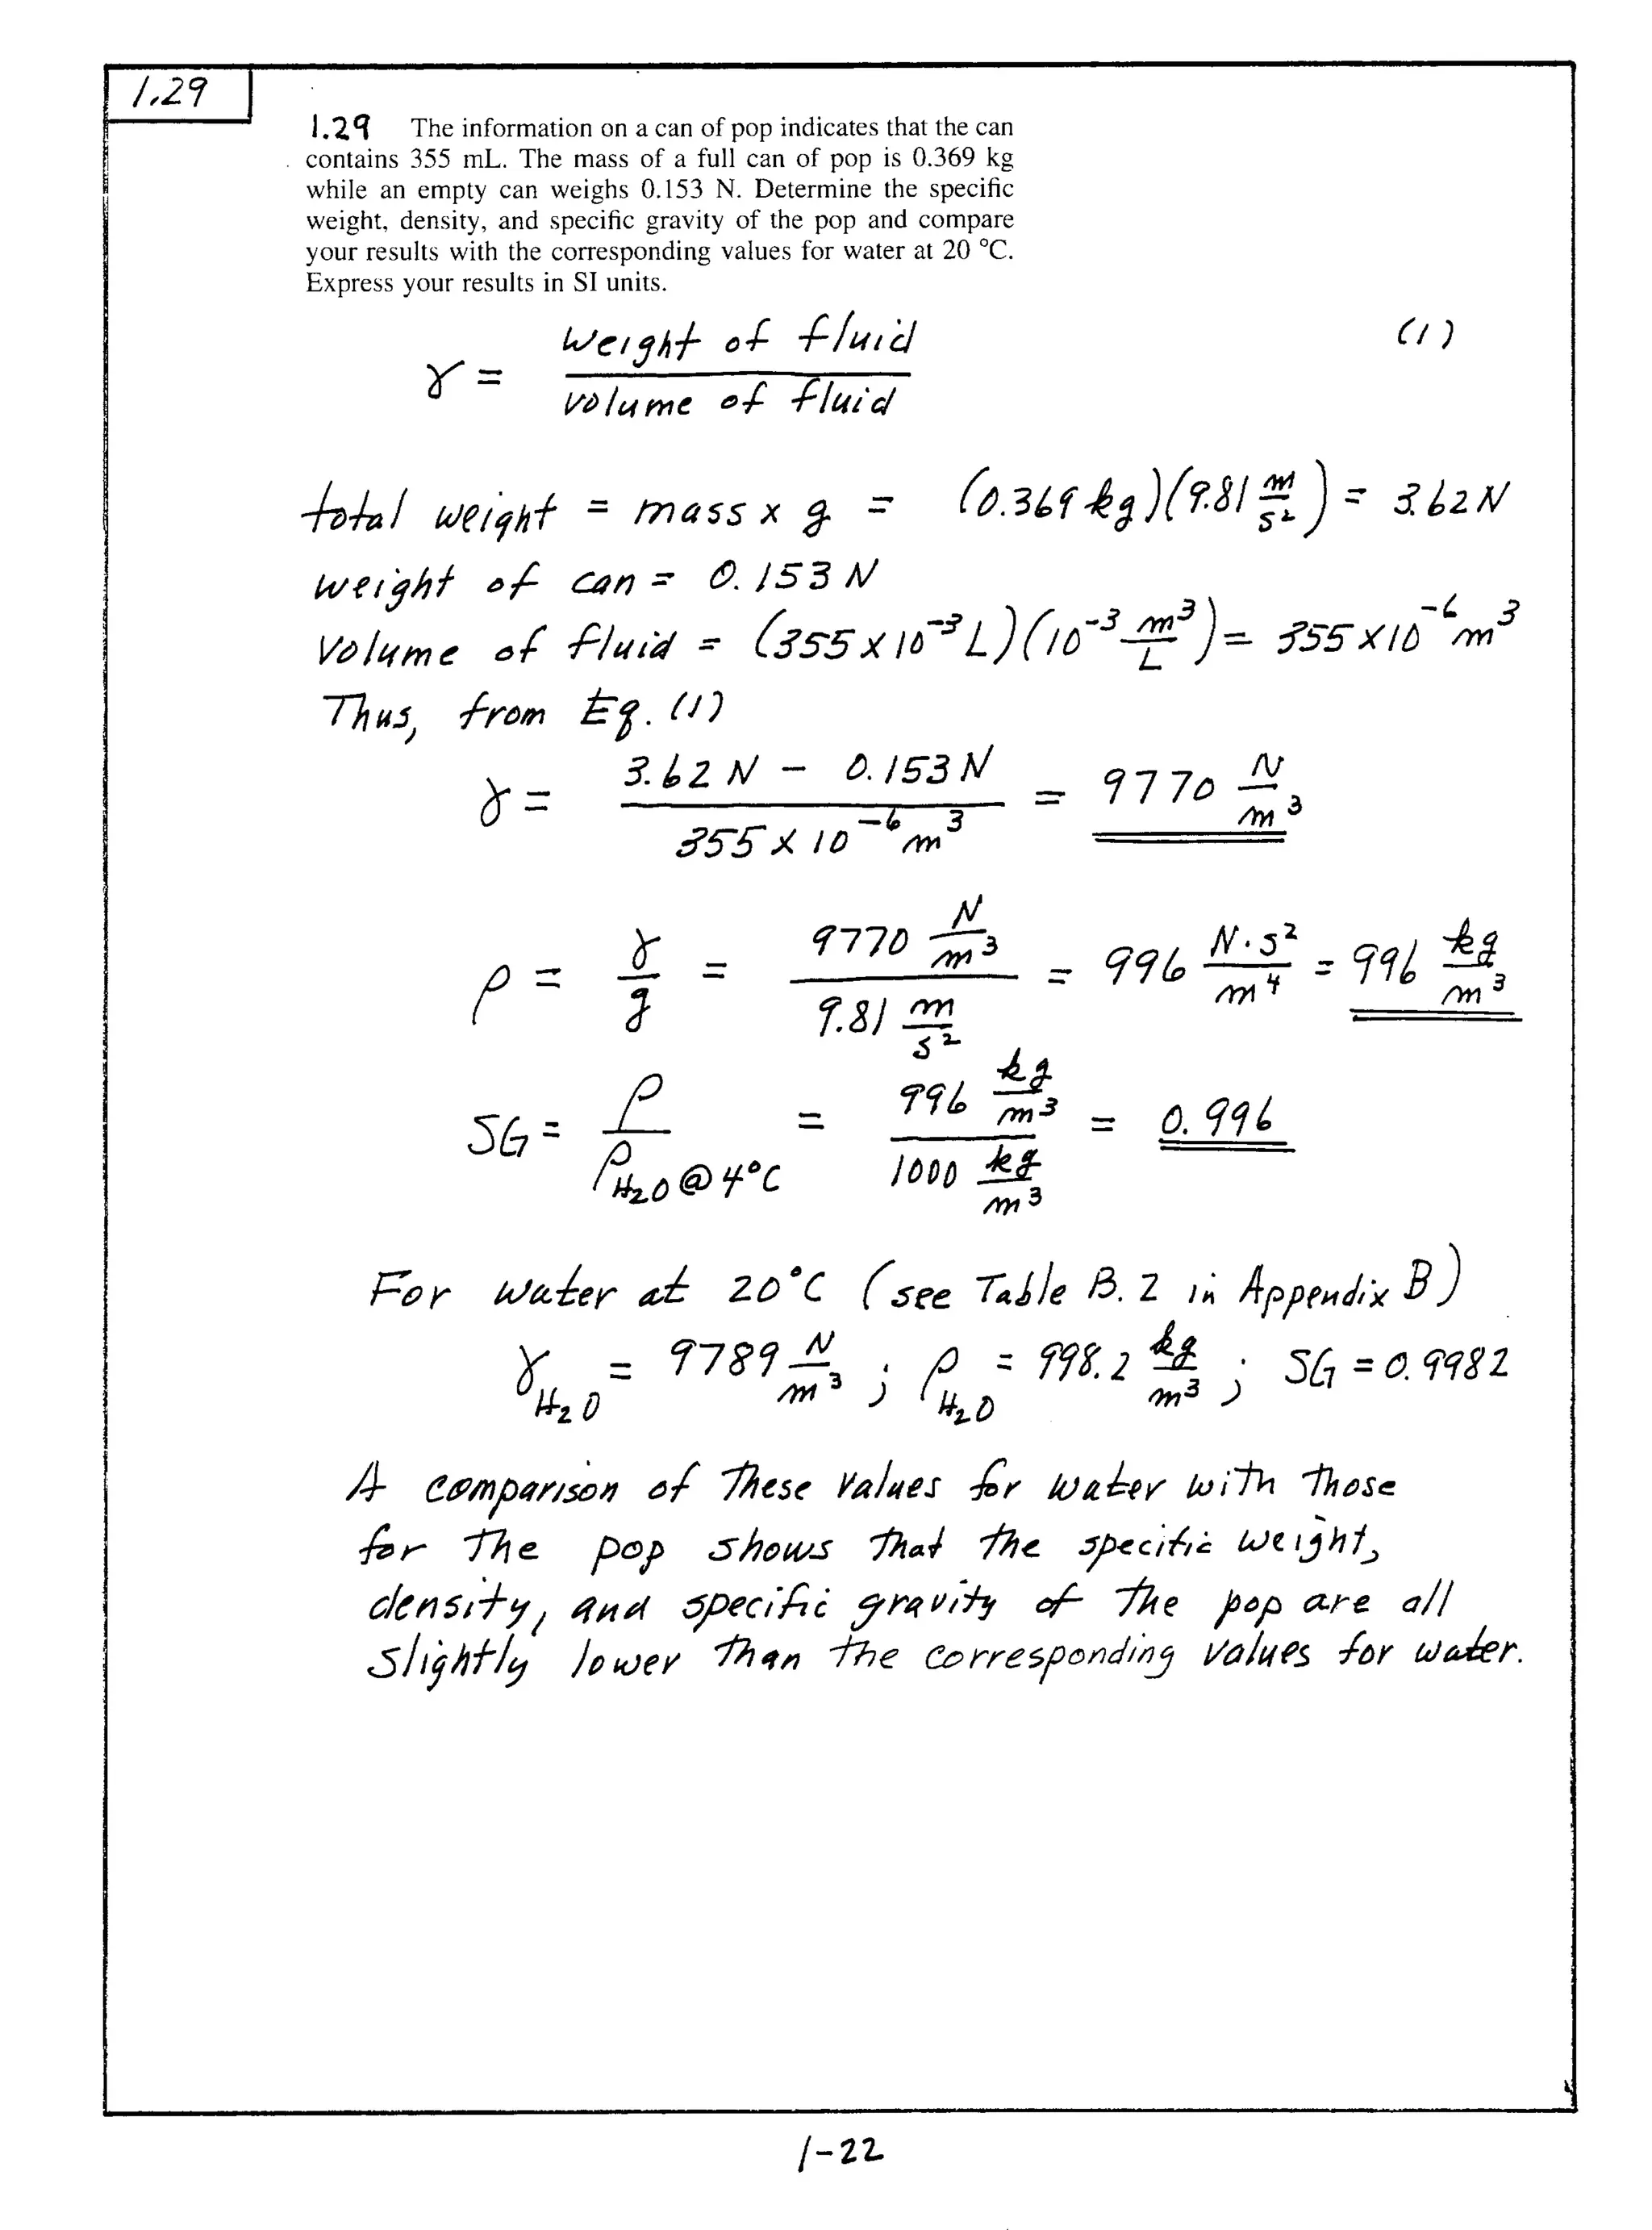 1.29
1.29 The information on a can of pop indicates that the can
contains 355 mL. The mass of a full can of pop is 0.369 kg
while an empty can weighs 0.153 N. Determine the specific
weight, density, and specific gravity of the pop and compare
your results with the corresponding values for water at 20 °C.
Express your results in SI units.
γ = weight of fluid / volume of fluid (1)
total weight = mass x g = (0.369 kg)(9.81 m/s²) = 3.62 N
weight of can = 0.153 N
volume of fluid = (355 x 10⁻³ L)(10⁻³ m³/L) = 355 x 10⁻⁶ m³
Thus, from Eq. (1)
γ = 3.62 N - 0.153 N / 355 x 10⁻⁶ m³ = 9770 N/m³
ρ = γ/g = 9770 N/m³ / 9.81 m/s² = 996 N·s²/m⁴ = 996 kg/m³
SG = ρ / ρH₂O @ 4°C = 996 kg/m³ / 1000 kg/m³ = 0.996
For water at 20°C (see Table B.2 in Appendix B)
γH₂O = 9789 N/m³ ; ρH₂O = 998.2 kg/m³ ; SG = 0.9982
A comparison of these values for water with those
for the pop shows that the specific weight,
density, and specific gravity of the pop are all
slightly lower than the corresponding values for water.
1-22